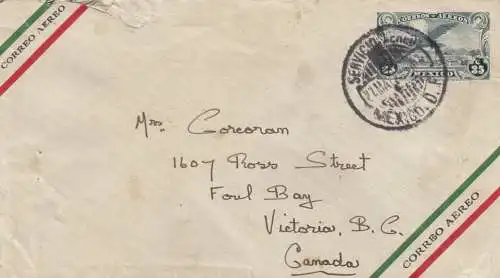 CORREO AEREO
CORREOS AEREOS
25 25
MEXICO
SERVICIO AEREO
MEXICO, D. F.
Mrs. Corcoran
1607 Ross Street
Foul Bay
Victoria, B.C.
Canada
CORREO AEREO